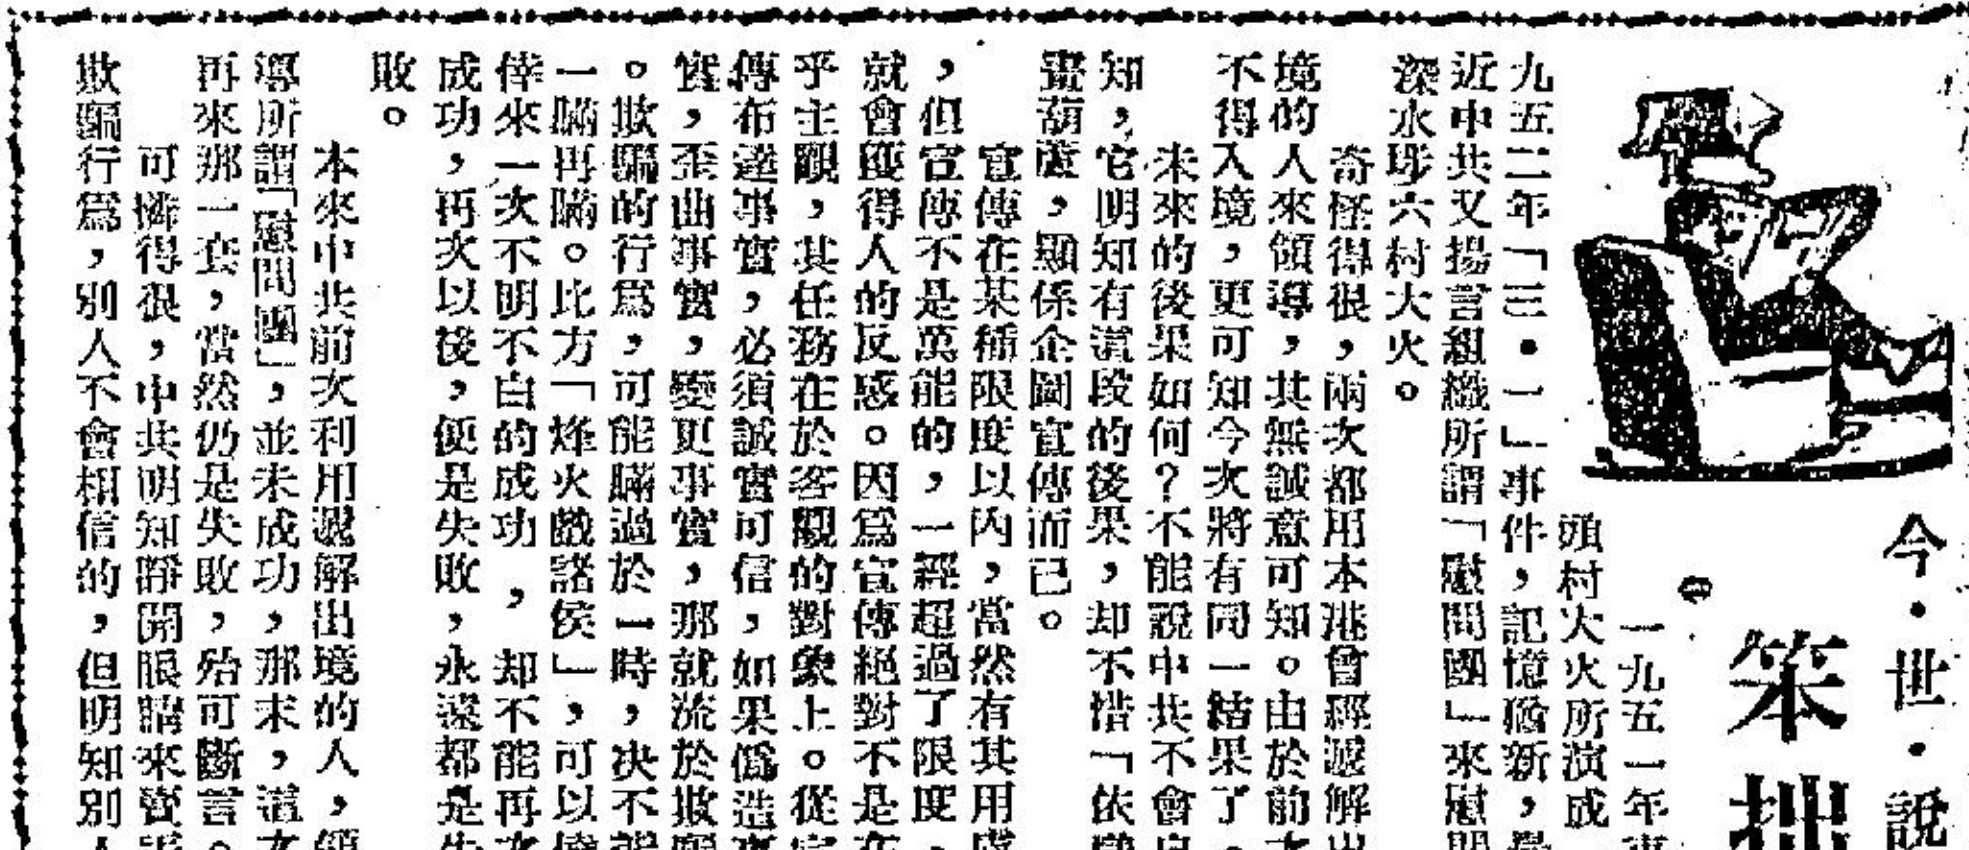 今·世·說
笨拙
一九五一年東
頭村大火所演成
九五二年「三·一」事件，記憶猶新，最
近中共又揚言組織所謂「慰問團」來慰問
深水埗六村大火。
奇怪得很，兩次都用本港曾經遞解出
境的人來領導，其無誠意可知。由於前次
不得入境，更可知今次將有同一結果了。
未來的後果如何？不能說中共不會自
知，它明知有這段的後果，却不惜「依樣
畫葫蘆，顯係企圖宣傳而已。
宣傳在某種限度以內，當然有其用
，但宣傳不是萬能的，一經超過了限度，
就會獲得人的反感。因為宣傳絕對不是在
乎主觀，其任務在於客觀的對象上。從宣
傳布達事實，必須誠實可信，如果偽造事
實，歪曲事實，變更事實，那就流於欺騙
。欺騙的行為，可能瞞過於一時，決不能
一瞞再瞞。比方「烽火戲諸侯」，可以僥
倖來一次不明不白的成功，却不能再次
成功，再次以後，便是失敗，永遠都是失
敗。
本來中共前次利用遞解出境的人，領
導所謂「慰問團」，並未成功，那末，這次
再來那一套，當然仍是失敗，殆可斷言。
可憐得很，中共明知睜開眼睛來賣弄
欺騙行為，別人不會相信的，但明知別人